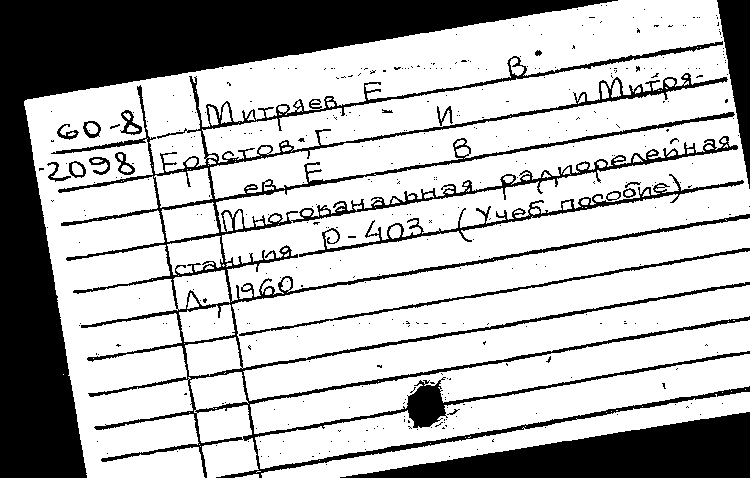 60-8 Митряев, Е В.
2098 Ерастов, Г И и Митря-
ев, Е В
Многоканальная радиорелейная
станция Р-403. (Учеб. пособие)
Л., 1960.